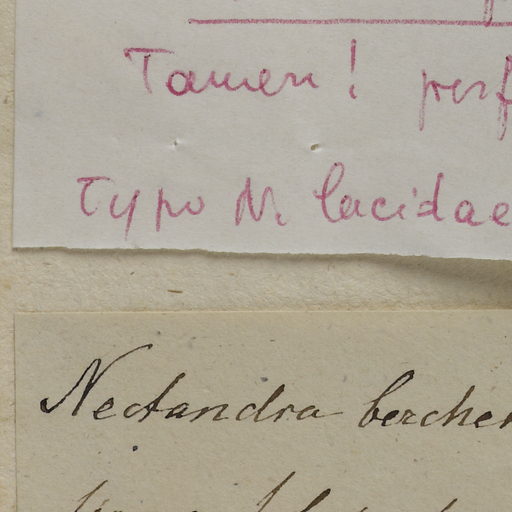 Tamen! perf
Typo N. lucidae
Nectandra bercher